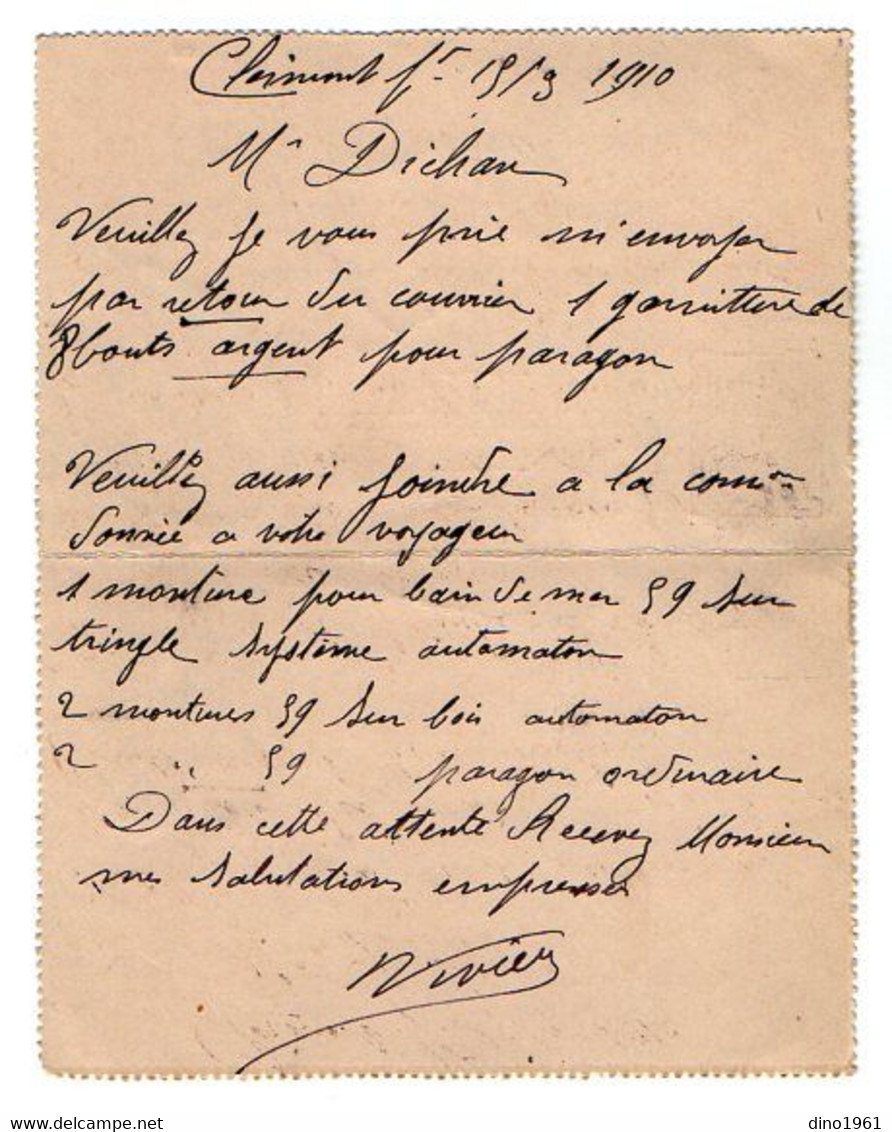 Clermont Fr 15/3 1910
Mr Dichan
Veuillez je vous prie m'envoyer
par retour du courrier 1 garniture de
8 bouts argent pour paragon
Veuillez aussi joindre a la comon
donnée a votre voyageur
1 monture pour bain de mer 59 sur
tringle système automaton
2 montures 59 sur bois automaton
2 " 59 paragon ordinaire
Dans cette attente Recevez Monsieur
mes salutations empressées
Vivier
www.delcampe.net
dino1961